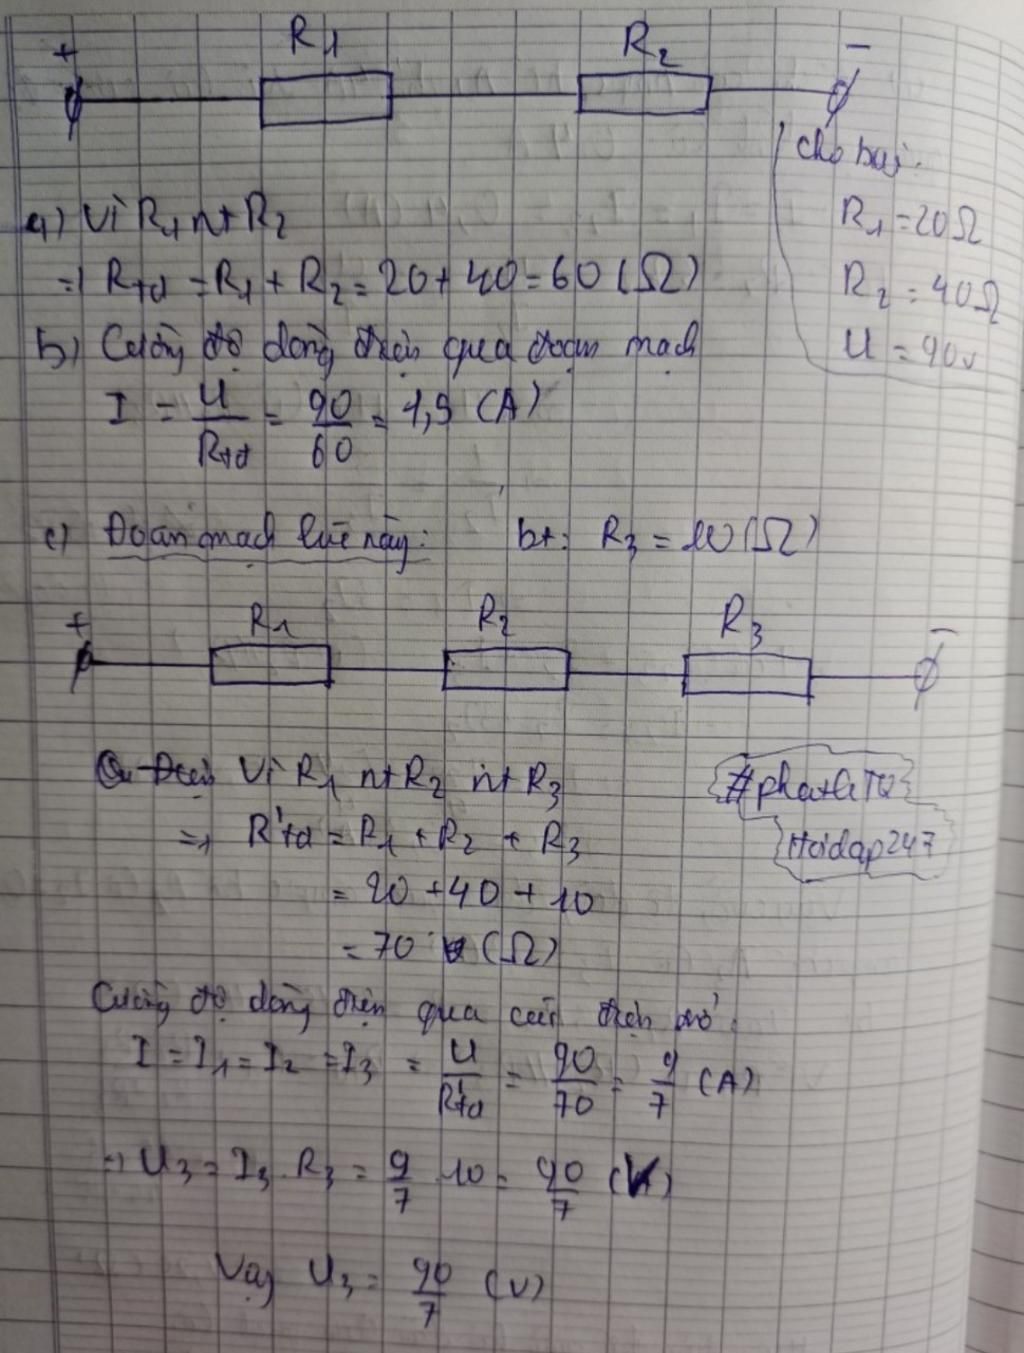 + R1 R2 -
Cho bởi:
R1 = 20Ω
R2 = 40Ω
U = 90v
a) Vì R1 nt R2
=> Rtđ = R1 + R2 = 20 + 40 = 60 (Ω)
b) Cường độ dòng điện qua đoạn mạch
I = U/Rtđ = 90/60 = 1,5 (A)
c) Đoạn mạch lúc này: bt: R3 = 10 (Ω)
+ R1 R2 R3 -
Vì R1 nt R2 nt R3
=> R'tđ = R1 + R2 + R3
= 20 + 40 + 10
= 70 (Ω)
#phatLiTQ
Hoidap247
Cường độ dòng điện qua các điện trở:
I = I1 = I2 = I3 = U/R'tđ = 90/70 = 9/7 (A)
=> U3 = I3 . R3 = 9/7 . 10 = 90/7 (V)
Vậy U3 = 90/7 (V)